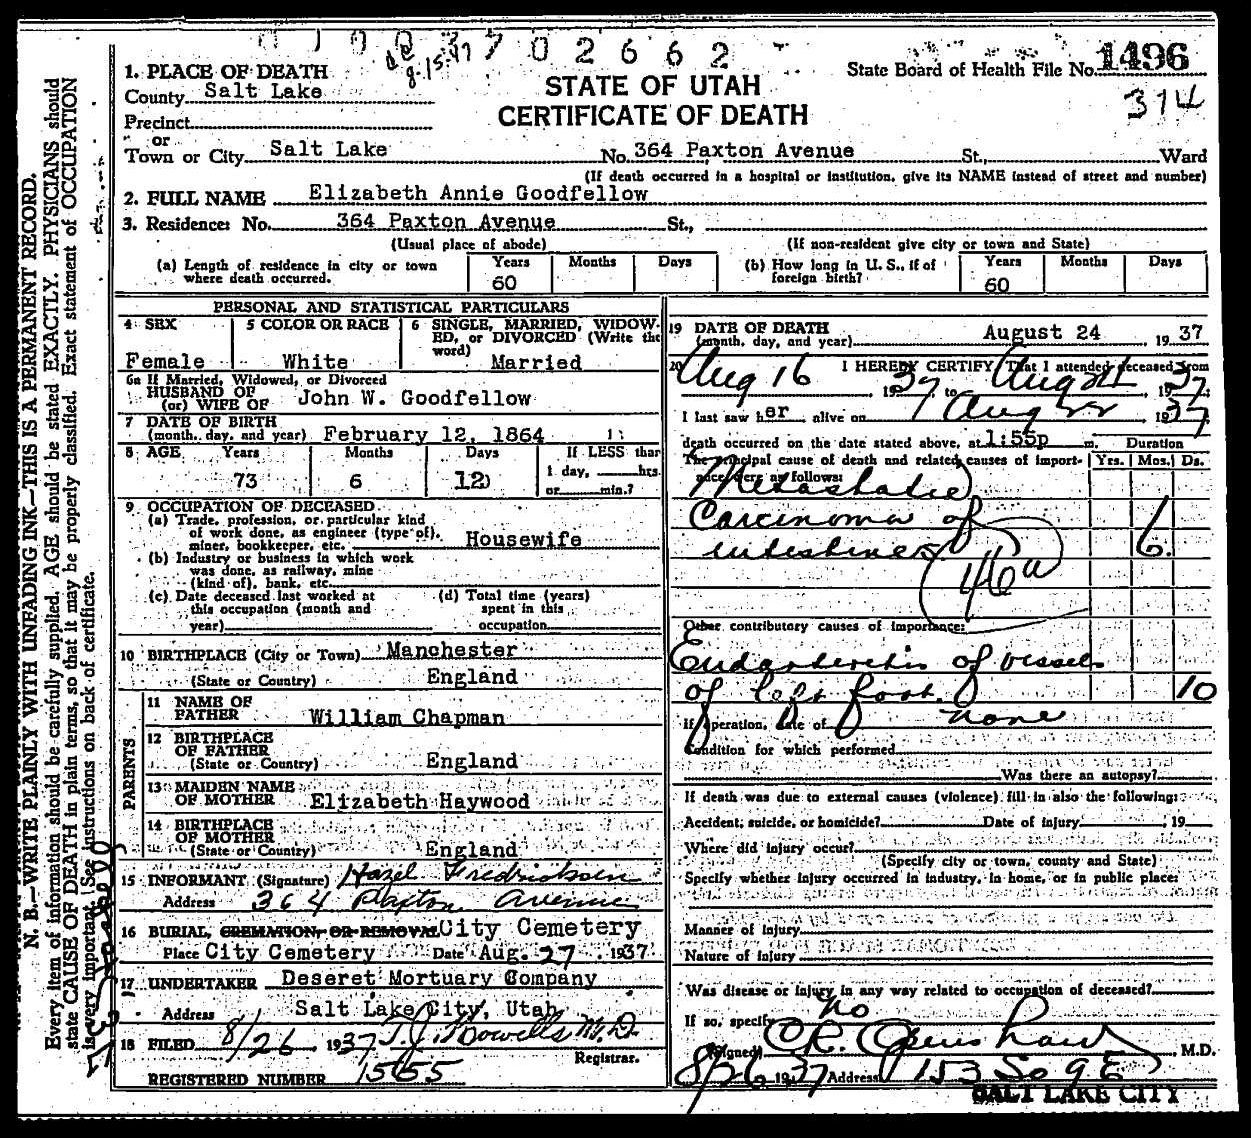 0 1 0 0 3 7 0 2 6 6 2
State Board of Health File No. 1496
374
STATE OF UTAH
CERTIFICATE OF DEATH
1. PLACE OF DEATH
County Salt Lake
Precinct
or
Town or City Salt Lake No. 364 Paxton Avenue St., Ward
(If death occurred in a hospital or institution, give its NAME instead of street and number)
2. FULL NAME Elizabeth Annie Goodfellow
3. Residence: No. 364 Paxton Avenue St.,
(Usual place of abode) (If non-resident give city or town and State)
(a) Length of residence in city or town where death occurred. Years 60 Months Days
(b) How long in U. S., if of foreign birth? Years 60 Months Days
PERSONAL AND STATISTICAL PARTICULARS
4 SEX Female
5 COLOR OR RACE White
6 SINGLE, MARRIED, WIDOWED, or DIVORCED (Write the word) Married
6a If Married, Widowed, or Divorced
HUSBAND OF
(or) WIFE OF John W. Goodfellow
7 DATE OF BIRTH
(month, day, and year) February 12, 1864
8 AGE Years 73 Months 6 Days 12 If LESS than 1 day, hrs. or min.?
9 OCCUPATION OF DECEASED
(a) Trade, profession, or particular kind
of work done, as engineer (type of),
miner, bookkeeper, etc. Housewife
(b) Industry or business in which work
was done, as railway, mine
(kind of), bank, etc.
(c) Date deceased last worked at this occupation (month and year)
(d) Total time (years) spent in this occupation
10 BIRTHPLACE (City or Town) Manchester
(State or Country) England
PARENTS
11 NAME OF
FATHER William Chapman
12 BIRTHPLACE
OF FATHER
(State or Country) England
13 MAIDEN NAME
OF MOTHER Elizabeth Haywood
14 BIRTHPLACE
OF MOTHER
(State or Country) England
15 INFORMANT (Signature) Hazel Fredricksen
Address 364 Paxton Avenue
16 BURIAL, CREMATION, OR REMOVAL City Cemetery
Place City Cemetery Date Aug. 27, 1937
17 UNDERTAKER Deseret Mortuary Company
Address Salt Lake City, Utah
18 FILED 8/26, 1937 T. J. Howells M.D.
Registrar.
REGISTERED NUMBER 1555
19 DATE OF DEATH
(month, day, and year) August 24, 1937
20 I HEREBY CERTIFY, That I attended deceased from
Aug 16 1937, to Aug 24, 1937,
I last saw her alive on Aug 22 1937
death occurred on the date stated above, at 1:55p m. Duration
The principal cause of death and related causes of importance were as follows: Yrs. Mos. Ds.
Metastatic
Carcinoma of
intestines 6.
46a
Other contributory causes of importance:
Endarteretis of vessels
of left foot. 10
If operation, date of none
Condition for which performed
Was there an autopsy?
If death was due to external causes (violence) fill in also the following:
Accident, suicide, or homicide? Date of injury , 19
Where did injury occur?
(Specify city or town, county and State)
Specify whether injury occurred in industry, in home, or in public place:
Manner of injury
Nature of injury
Was disease or injury in any way related to occupation of deceased?
If so, specify no
(Signed) O.R. Openshaw, M.D.
8/26 1937 Address 153 So 9 E
SALT LAKE CITY
N. B.—WRITE PLAINLY WITH UNFADING INK—THIS IS A PERMANENT RECORD.
Every item of information should be carefully supplied. AGE should be stated EXACTLY. PHYSICIANS should
state CAUSE OF DEATH in plain terms, so that it may be properly classified. Exact statement of OCCUPATION
is very important. (See instructions on back of certificate.